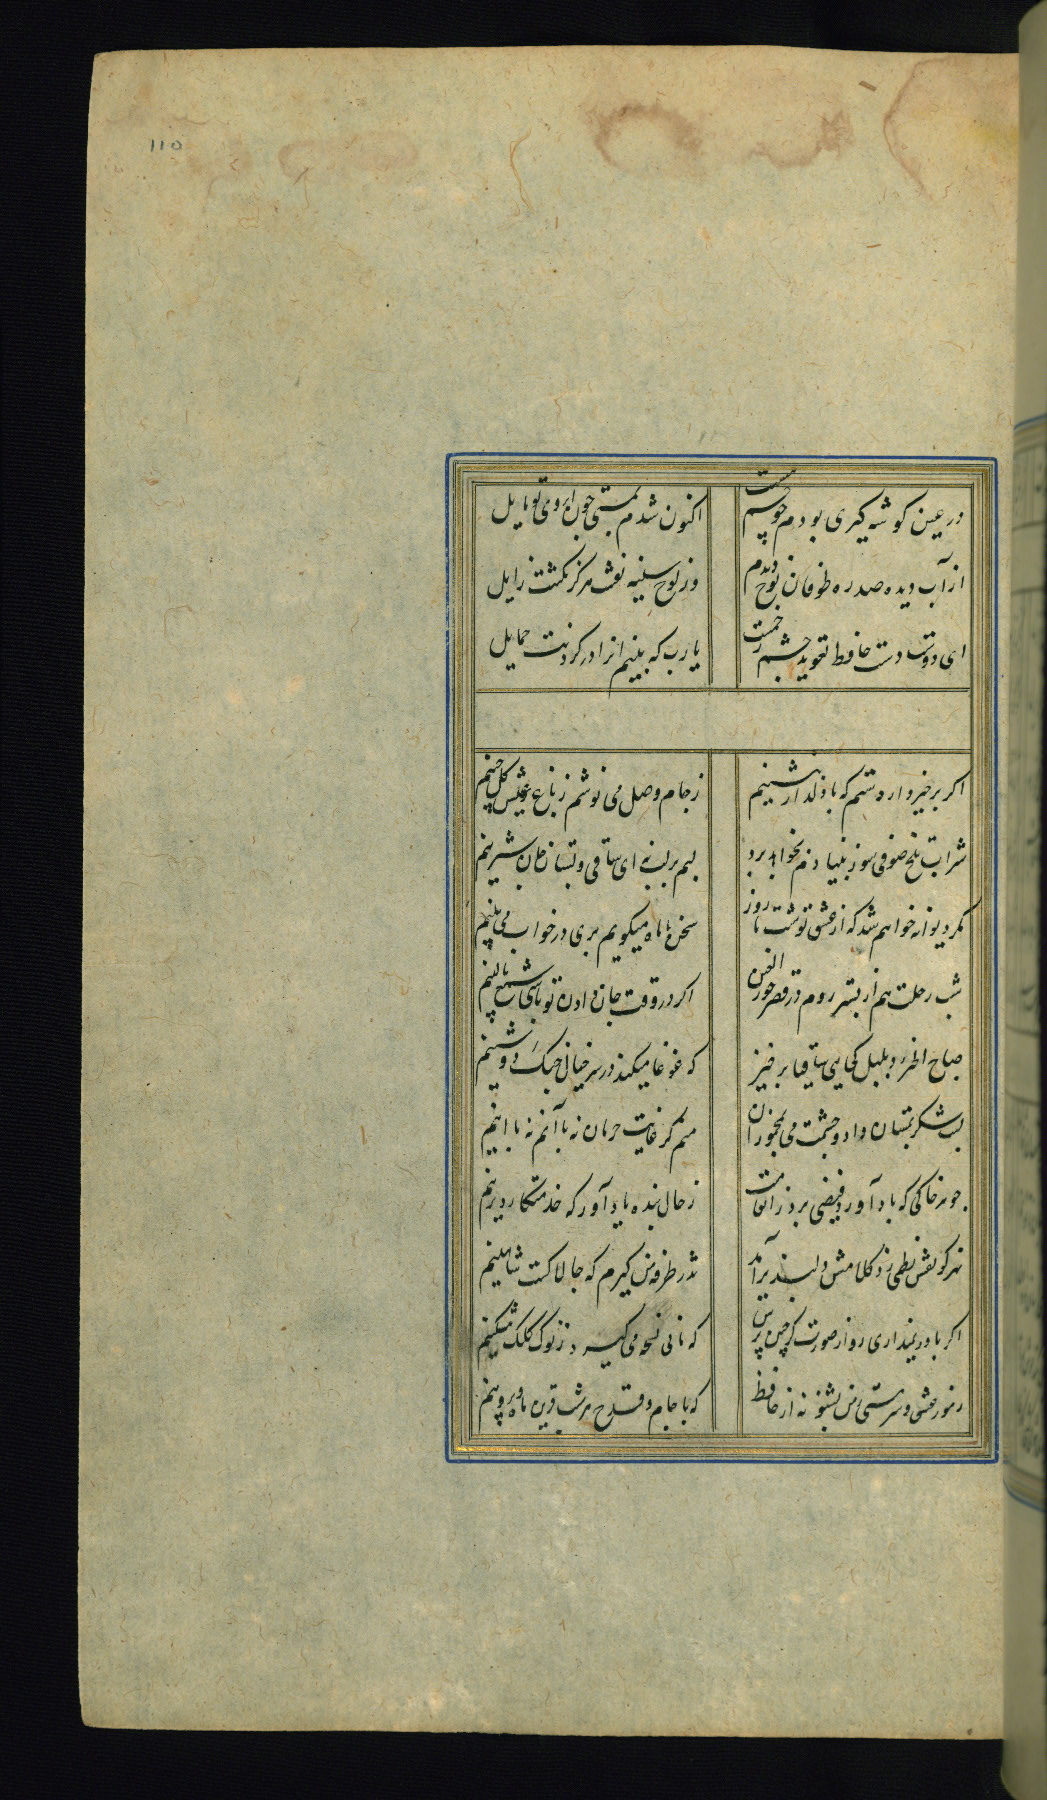 110
در عین کوشه کیری بودم چو چشم مستت اکنون شدم بمستی چون ابروی تو مایل
از آب دیده صد ره طوفان نوح دیدم وز لوح سینه نقشت هرکز نکشت زایل
ای دوست دست حافظ تعوید چشم زخمست یا رب که بینم انرا در کردنت حمایل
اکر برخیزد از دستم که با دلدار بنشینم ز جام وصل می نوشم ز باغ عیش کل چینم
شراب تلخ صوفی سوز بنیادم بخواهد برد لبم بر لب نه ای ساقی و بستان جان شیرینم
مکر دیوانه خواهم شد که از عشق تو شب تا روز سخن با ماه میکویم پری در خواب می بینم
شب رحلت هم از بستر روم در قصر حور العین اکر در وقت جان دادن تو باشی شمع بالینم
صباح الخیر زد بلبل کجایی ساقیا برخیز که غوغا میکند در سر خیال چنک دوشینم
لبت شکر بمستان داد و چشمت می بمخموران منم کز غایت حرمان نه با آنم نه با اینم
چو هر خاکی که باد آورد فیضی برد ز انعامت ز حال بنده یاد آور که خدمتکار دیرینم
نه هر کو نقش نظمی زد کلامش دلبند برآمد تذرو طرفه من کیرم که چالاکست شاهینم
اکر باور نمیداری رو از صورتکر چین پرس که مانی نسخه می کیرد ز نوک کلک مشکینم
رموز عشق و سرمستی ز من بشنو نه از حافظ که با جام و قدح هر شب قرین ماه و پروینم